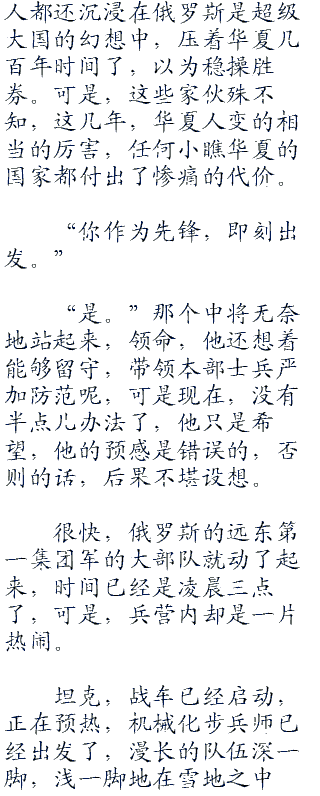 人都还沉浸在俄罗斯是超级
大国的幻想中，压着华夏几
百年时间了，以为稳操胜
券。可是，这些家伙殊不
知，这几年，华夏人变的相
当的厉害，任何小瞧华夏的
国家都付出了惨痛的代价。
“你作为先锋，即刻出
发。”
“是。”那个中将无奈
地站起来，领命，他还想着
能够留守，带领本部士兵严
加防范呢，可是现在，没有
半点儿办法了，他只是希
望，他的预感是错误的，否
则的话，后果不堪设想。
很快，俄罗斯的远东第
一集团军的大部队就动了起
来，时间已经是凌晨三点
了，可是，兵营内却是一片
热闹。
坦克，战车已经启动，
正在预热，机械化步兵师已
经出发了，漫长的队伍深一
脚，浅一脚地在雪地之中